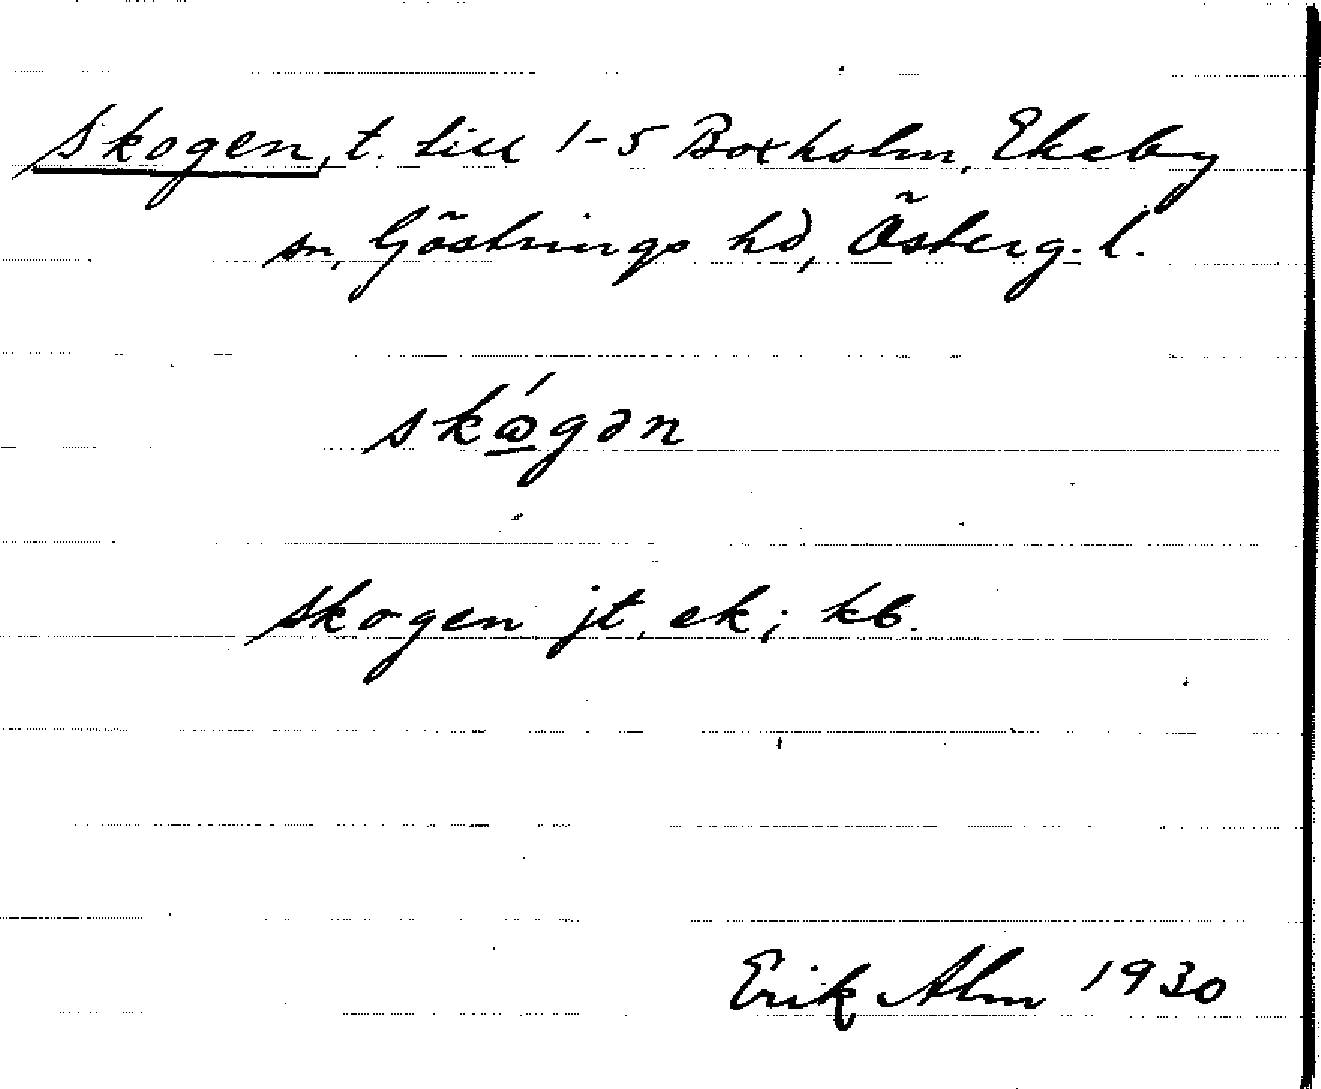 Skogen, t. till 1-5 Boxholm, Ekeby
sn, Göstrings hd, Österg. l.
skώ̲gən
Skogen jt, ek; kb.
Erik Alm 1930